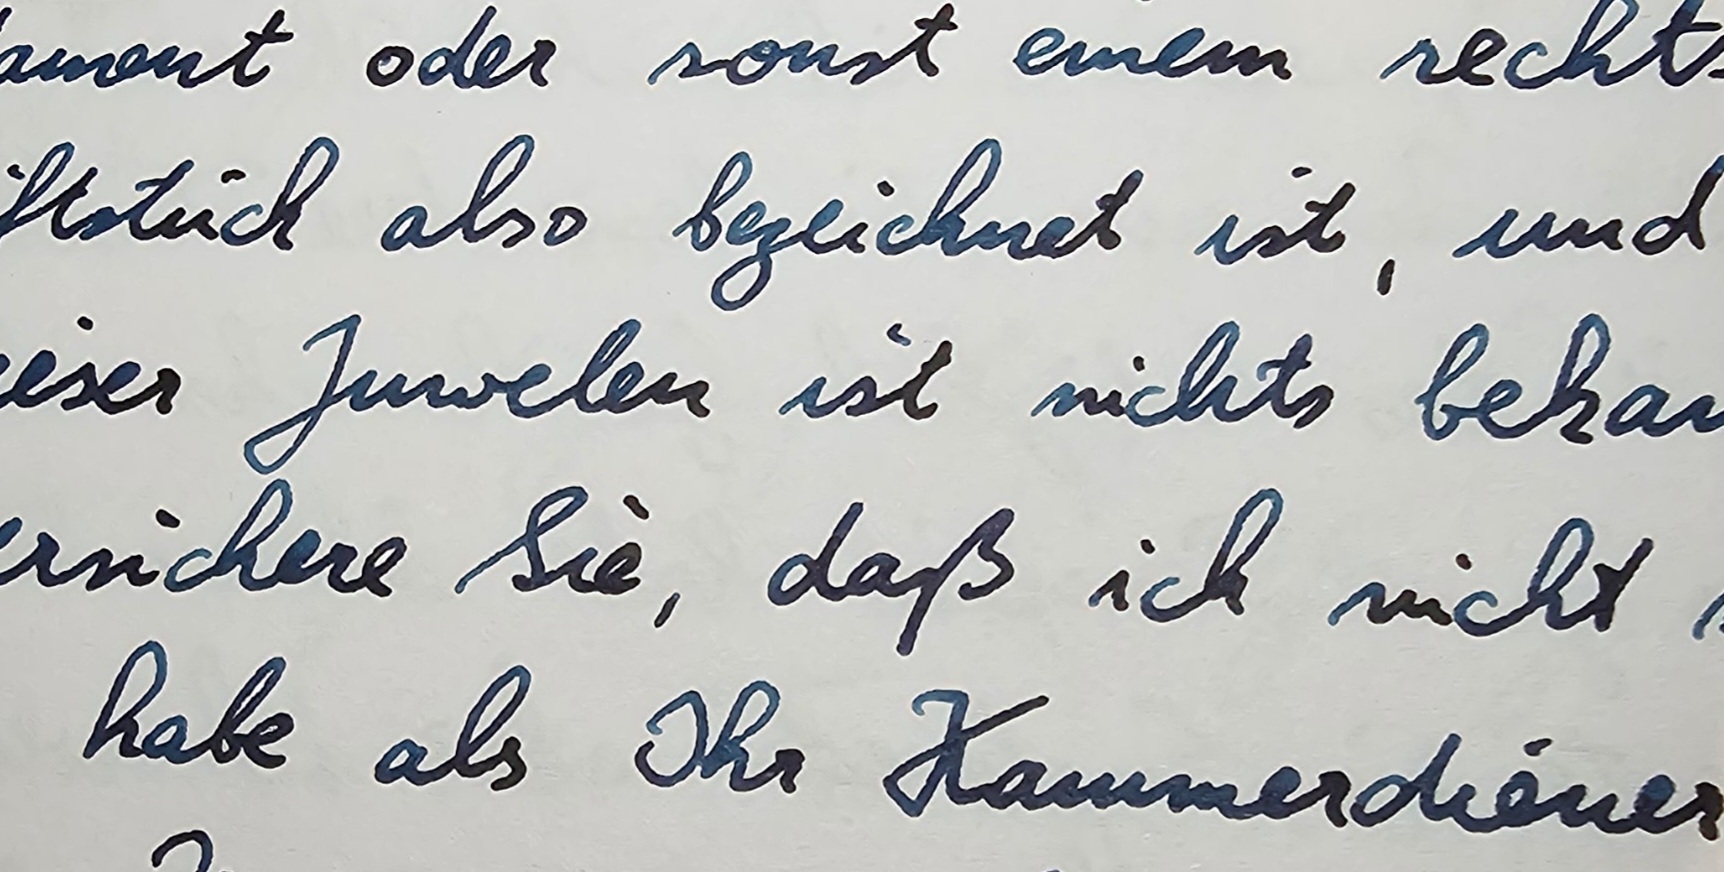 tament oder sonst einem rechts
iftstück also bezeichnet ist, und
ieser Juwelen ist nichts bekan
ersichere Sie, daß ich nicht
habe als Ihr Kammerdiener